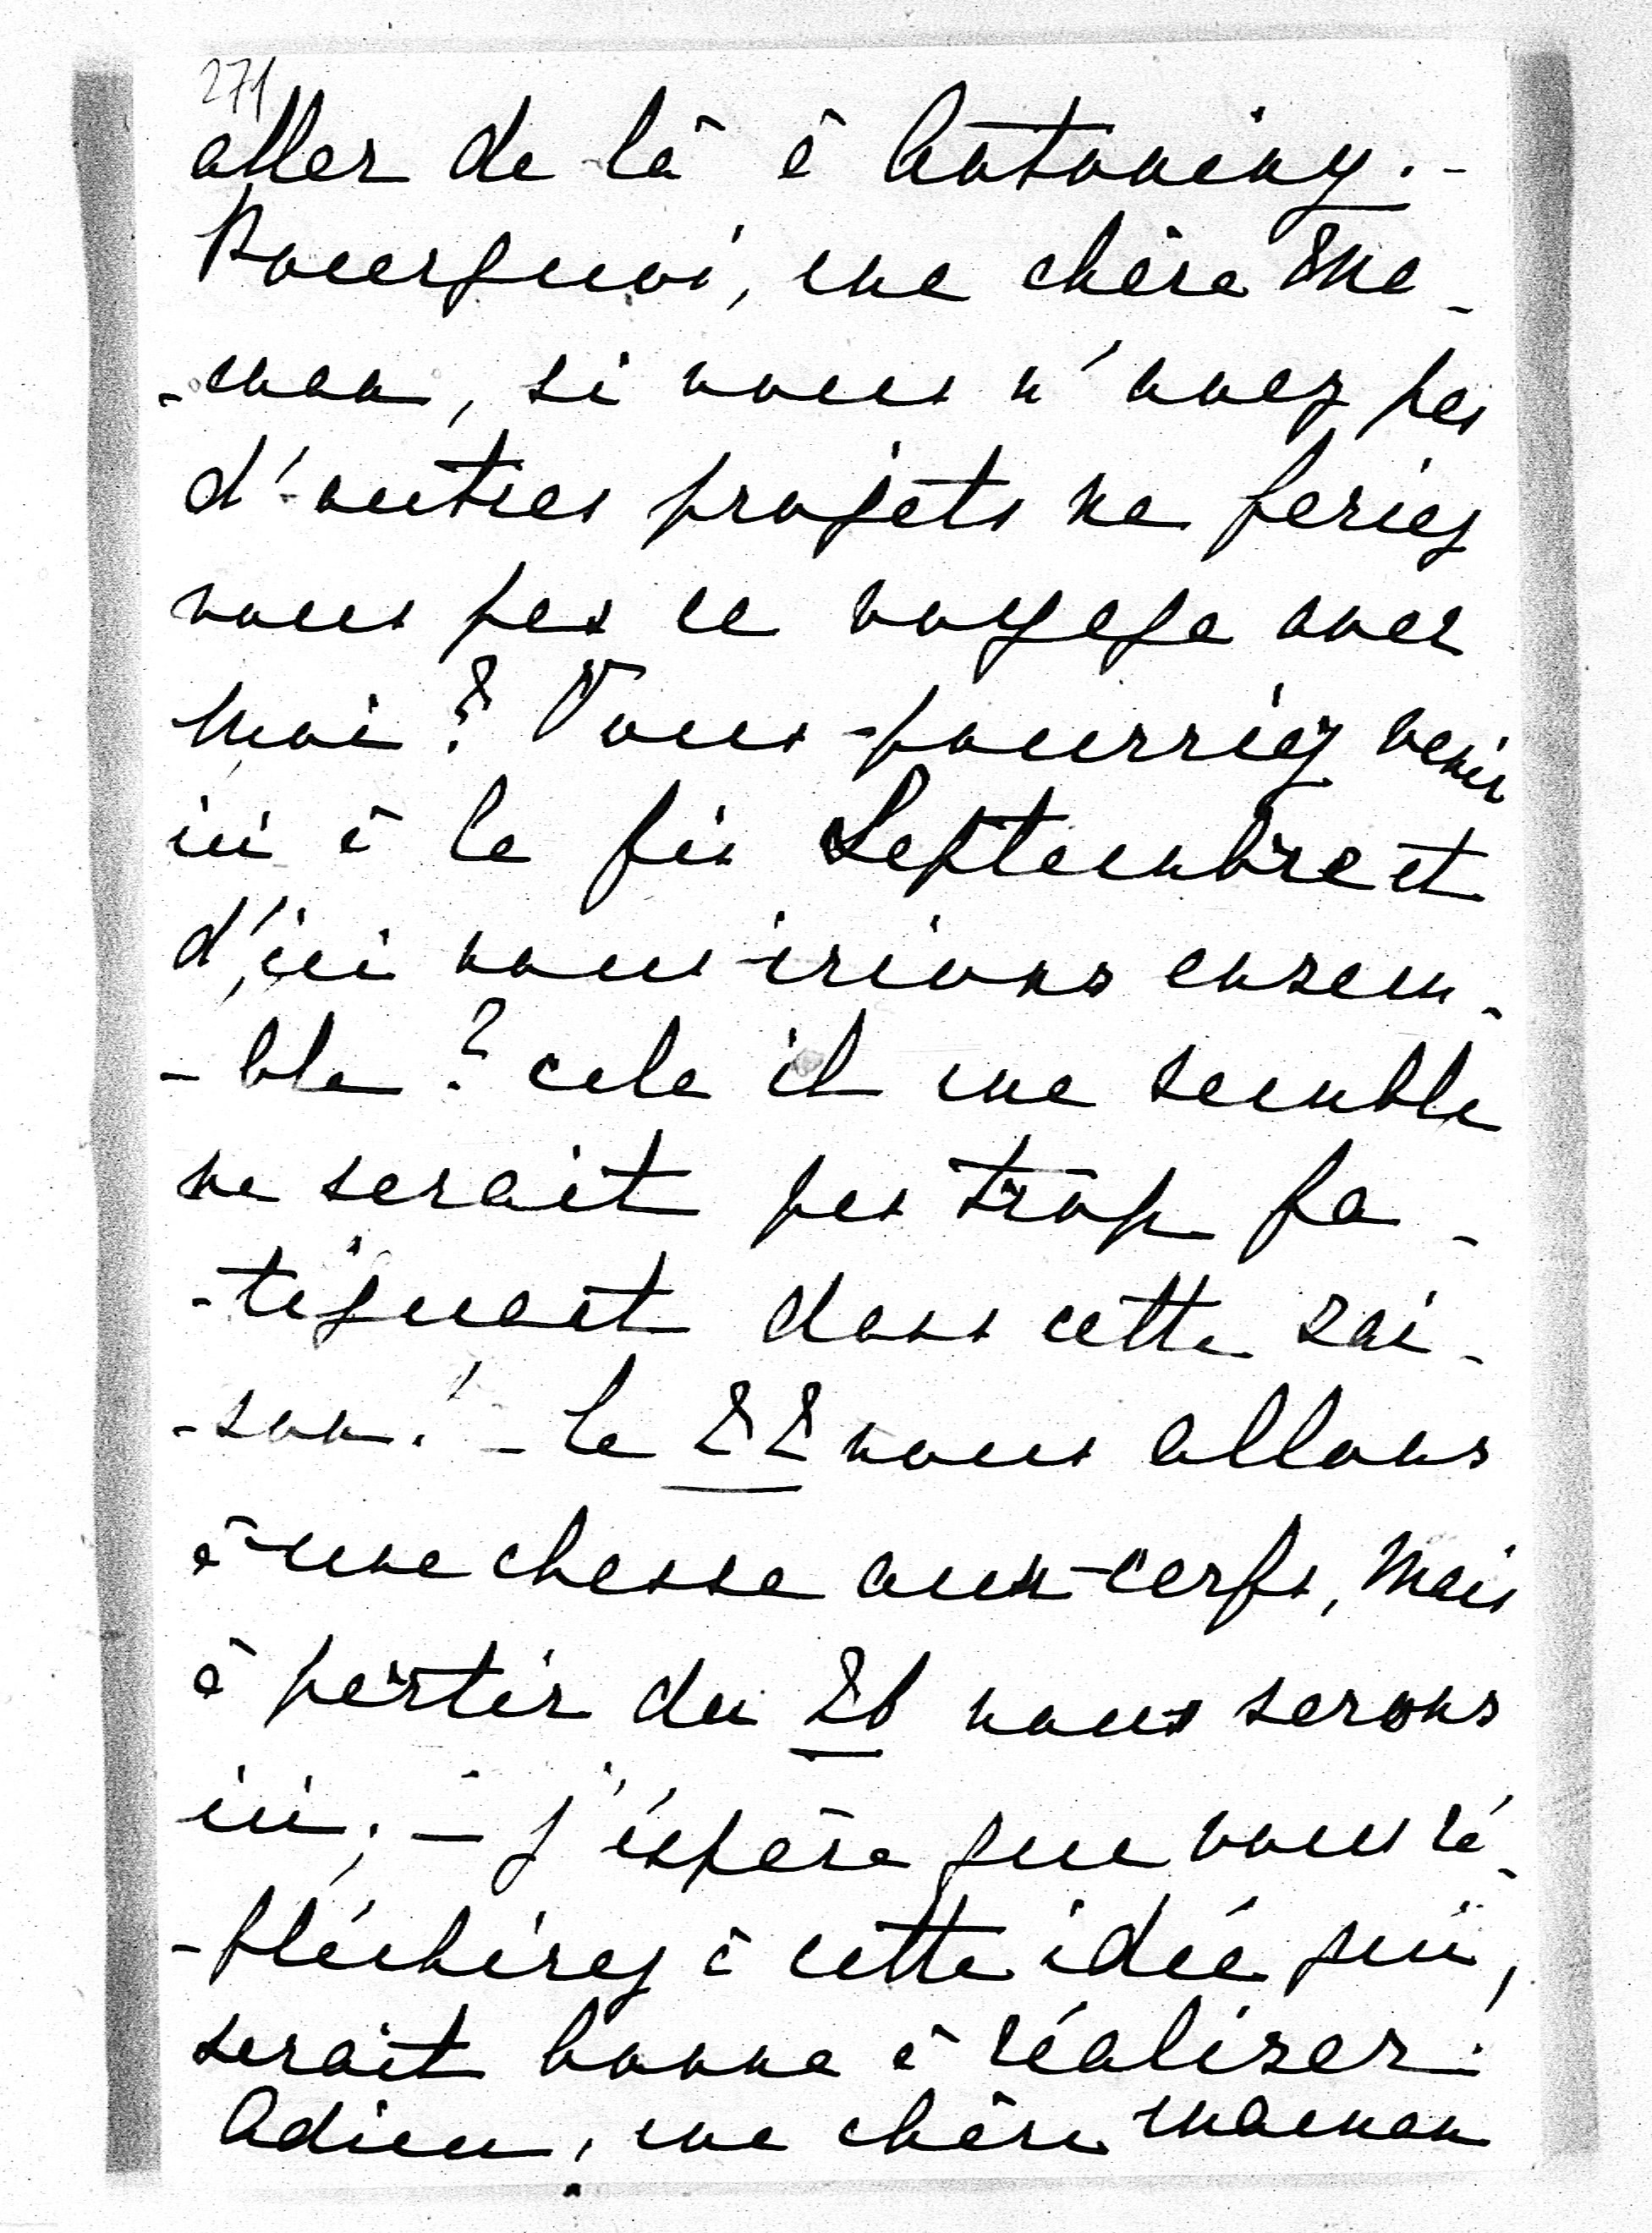 271
aller de là à Antoniny. -
Pourquoi, ma chère Ma-
-man, si vous n'avez pas
d'autres projets ne feriez
vous pas ce voyage avec
moi? Vous pourriez venir
ici à la fin Septembre et
d'ici nous irions ensem-
-ble? cela il me semble
ne serait pas trop fa-
-tiguant dans cette sai-
-son! - Le 22 nous allons
à une chasse aux cerfs, Mais
à partir du 26 nous serons
ici; - j'éspère que vous ré-
-fléchirez à cette idée qui,
serait bonne à réaliser.
Adieu, ma chère maman